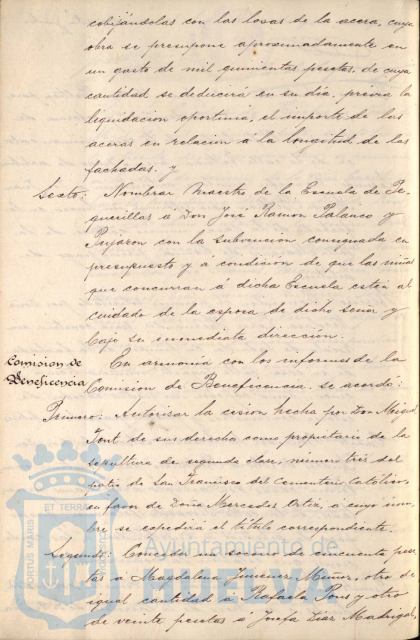 cobijándolas con las losas de la acera, cuya
obra se presupone aproximadamente en
un gasto de mil quinientas pesetas, de cuya
cantidad se deducirá en su dia, prévia la
liquidacion oportuna, el importe de las
aceras en relacion á la longitud de las
fachadas. y
Sexto: Nombrar Maestro de la Escuela de Pe-
guerillas á Don José Ramon Palanco y
Pujaron con la subvencion consignada en
presupuesto y á condicion de que las niñas
que concurran á dicha Escuela estén al
cuidado de la esposa de dicho señor y
bajo su inmediata direccion.
Comision de
Beneficencia
En armonía con los informes de la
Comision de Beneficencia, se acordó:
Primero: Autorizar la cesion hecha por Don Miguel
Font de sus derechos como propietario de la
sepultura de segunda clase, número tres del
patio de San Francisco del Cementerio Católico,
en favor de Doña Mercedes Ortiz, á cuyo nom-
bre se expedirá el título correspondiente.
Segundo: Conceder un socorro de cincuenta pese-
tas á Magdalena Jimenez Muñoz, otro de
igual cantidad á Rafaela Pons y otro
de veinte pesetas á Josefa Diaz Madrigal,
PORTUS MARIS
ET TERRAE
Ayuntamiento de
HUELVA